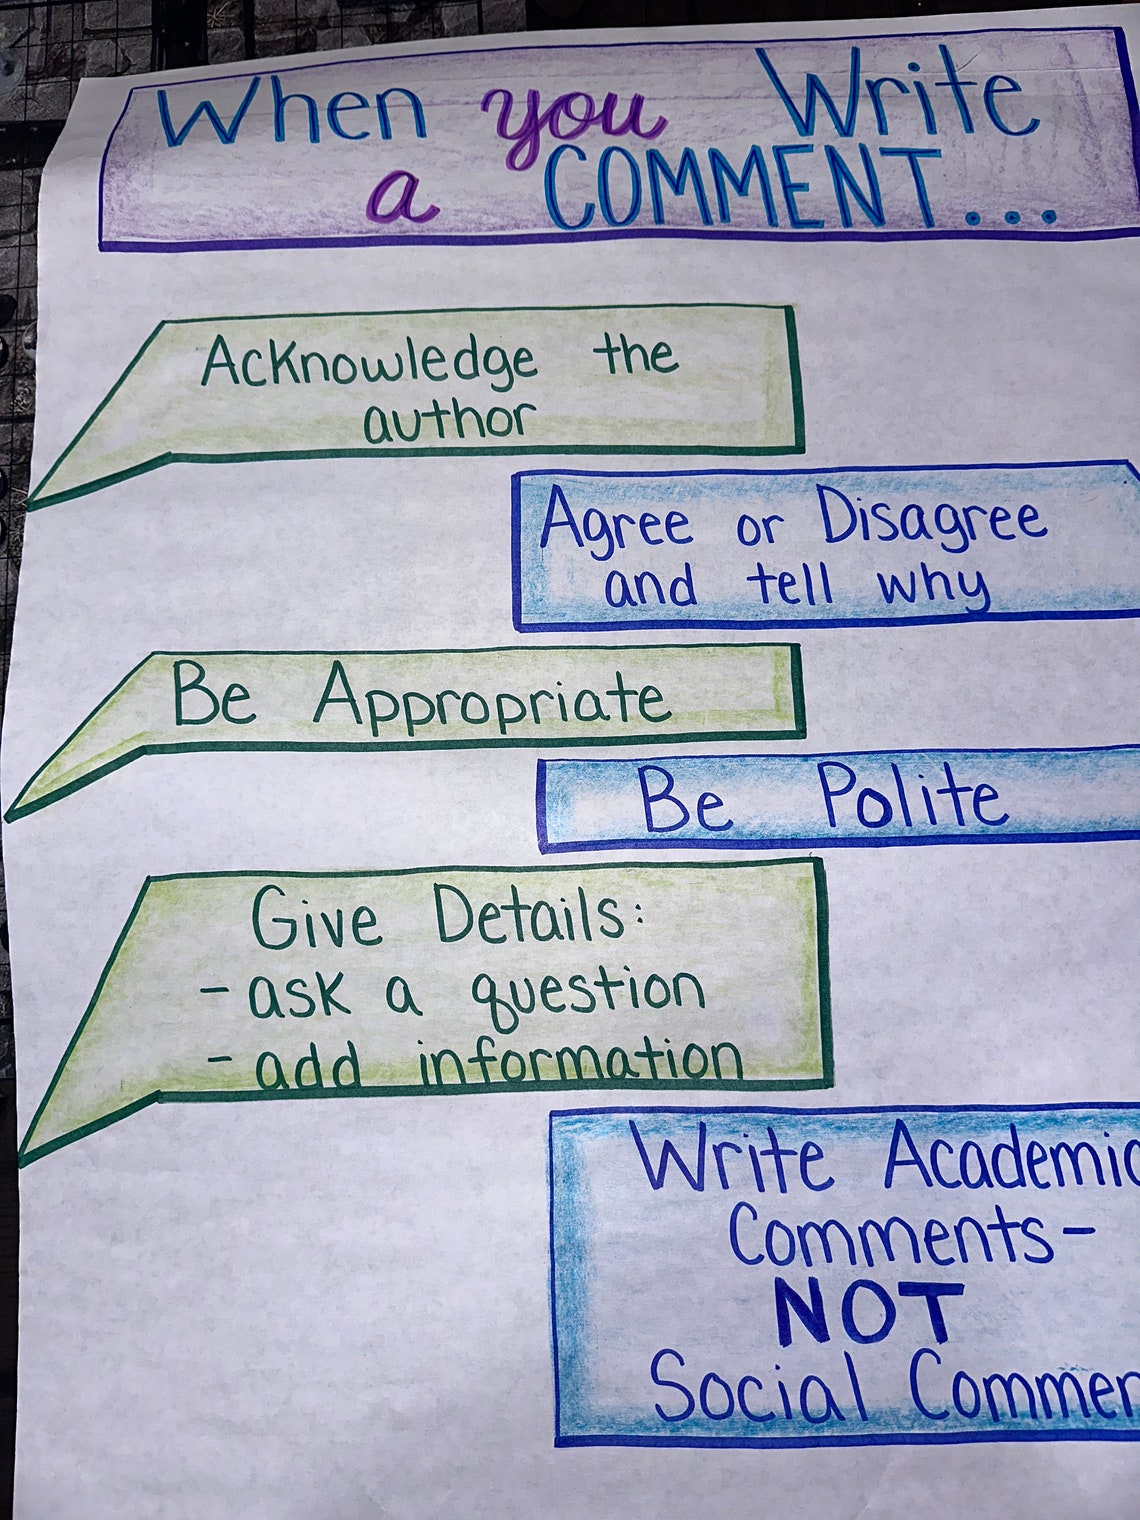 When you Write
a COMMENT...
Acknowledge the
author
Agree or Disagree
and tell why
Be Appropriate
Be Polite
Give Details:
- ask a question
- add information
Write Academic
Comments-
NOT
Social Commen